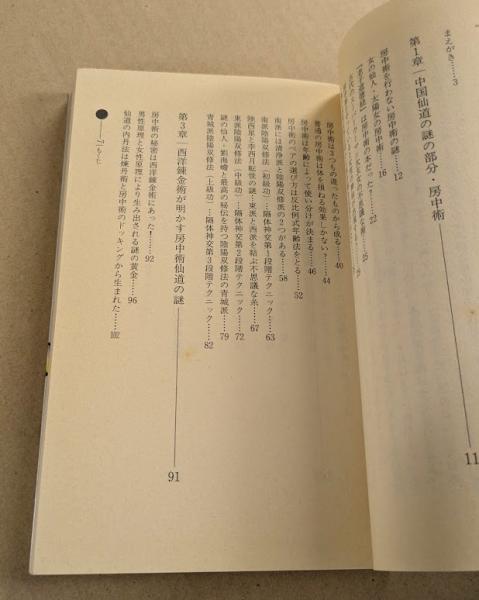 まえがき……3
第1章｜中国仙道の謎の部分・房中術
11
房中術を行わない房中術の謎……12
女の仙人・太陽女の房中術……16
房中術は3つもの違ったものから成る……40
普通の房中術は体を損ねる効果しかない？……44
房中術は年齢によって使い分けが決まる……46
房中術のペアの選び方は反比例式年齢法をとる……52
南派には清浄派と陰陽双修派の2つがある……58
南派陰陽双修法（初級功）…隔体神交第1段階テクニック……63
陸西星と李西月転液の謎…東派と西派を結ぶ不思議な糸……67
東派陰陽双修法（中級功）…隔体神交第2段階テクニック……72
謎の仙人・劉海蟾と最高の秘伝を持つ陰陽双修法の青城派……79
青城派陰陽双修法（上級功）…隔体神交第3段階テクニック……82
第3章｜西洋錬金術が明かす房中術仙道の謎
91
房中術の秘密は西洋錬金術にあった！……92
男性原理と女性原理により生み出される謎の黄金……96
仙道の内丹法は煉丹術と房中術のドッキングから生まれた……102
●―もくじ